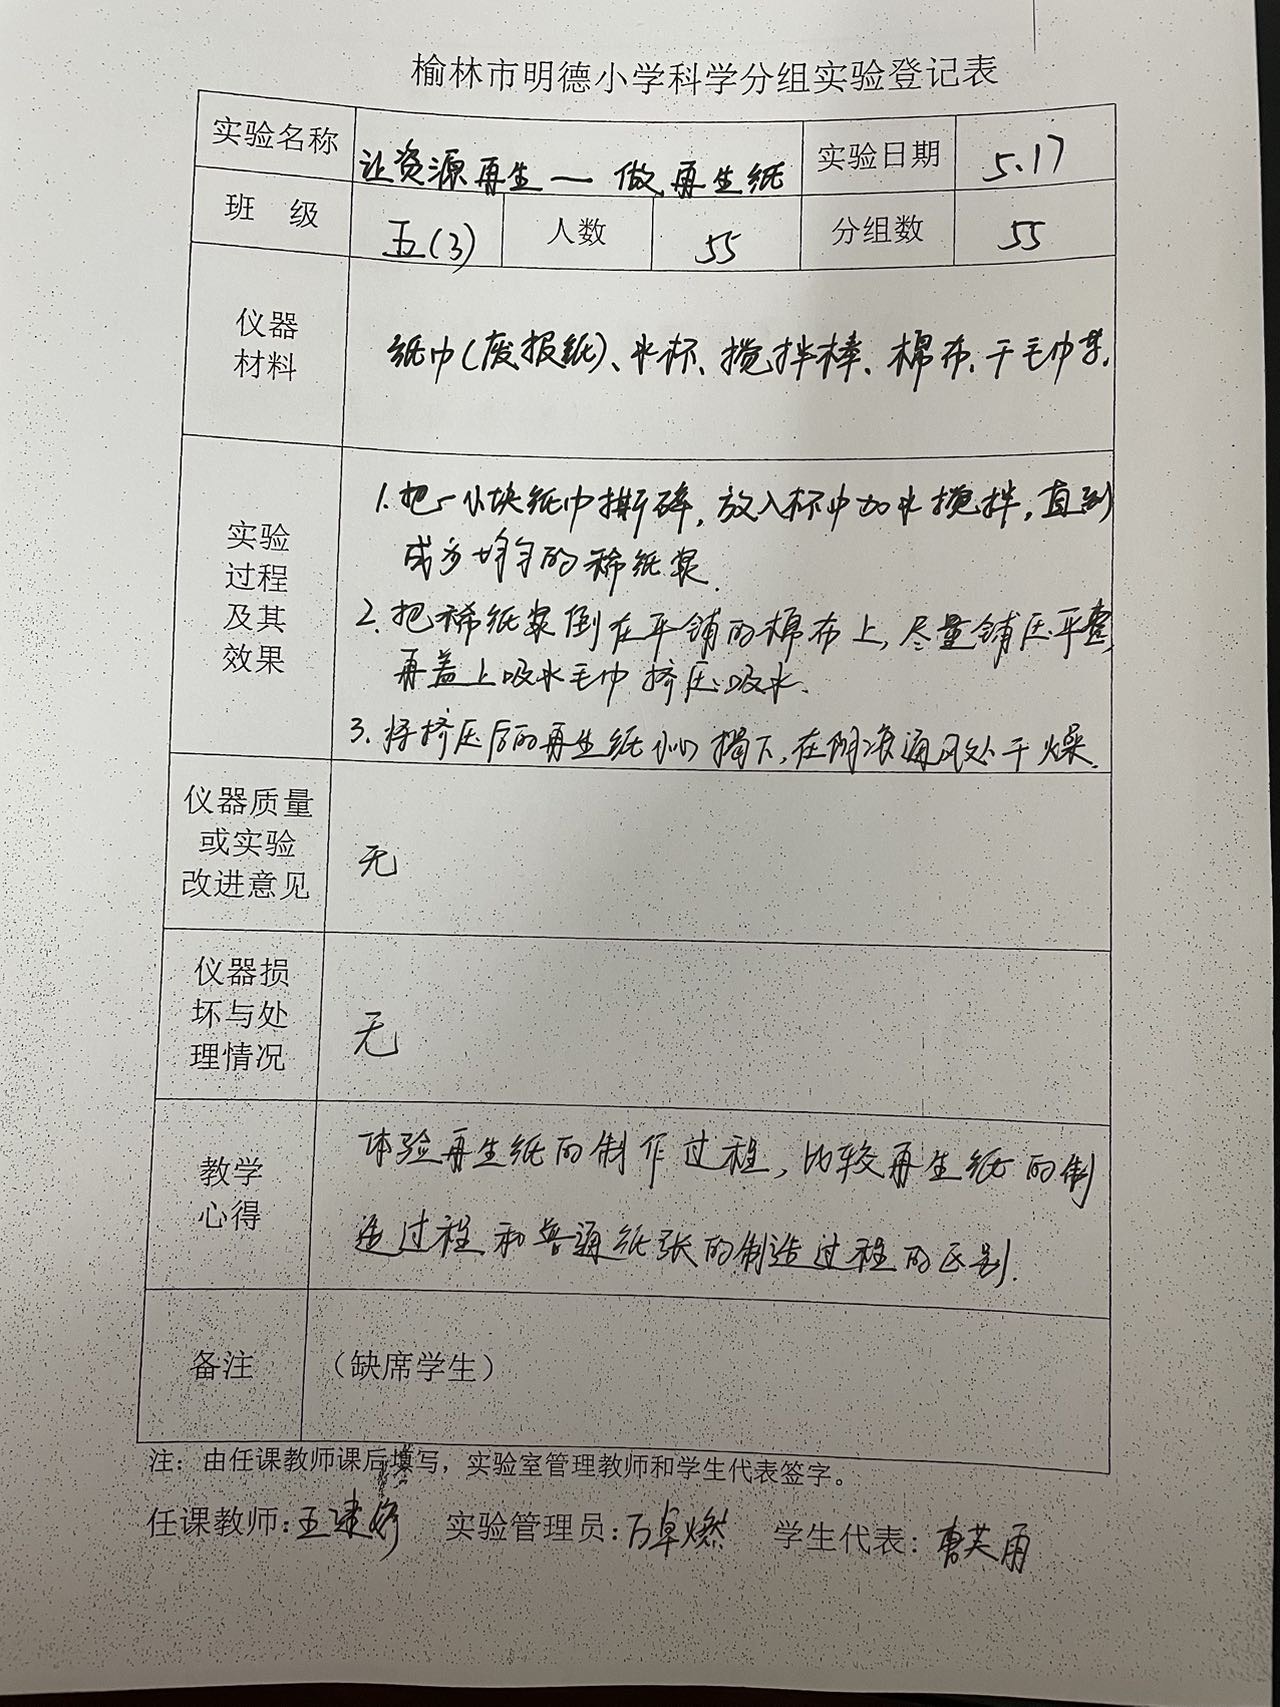 榆林市明德小学科学分组实验登记表
实验名称 让资源再生—做再生纸 实验日期 5.17
班 级 五(3) 人数 55 分组数 55
仪器
材料
纸巾(废报纸)、水杯、搅拌棒、棉布、干毛巾等.
实验
过程
及其
效果
1.把一小块纸巾撕碎,放入杯中加水搅拌,直到
成为均匀的稀纸浆.
2.把稀纸浆倒在平铺的棉布上,尽量铺压平整,
再盖上吸水毛巾挤压吸水.
3.将挤压后的再生纸小心揭下,在阴凉通风处干燥.
仪器质量
或实验
改进意见
无
仪器损
坏与处
理情况
无
教学
心得
体验再生纸的制作过程,比较再生纸的制
造过程和普通纸张的制造过程的区别.
备注 (缺席学生)
注:由任课教师课后填写,实验室管理教师和学生代表签字。
任课教师:王建 实验管理员:万卓燃 学生代表:曹英雨